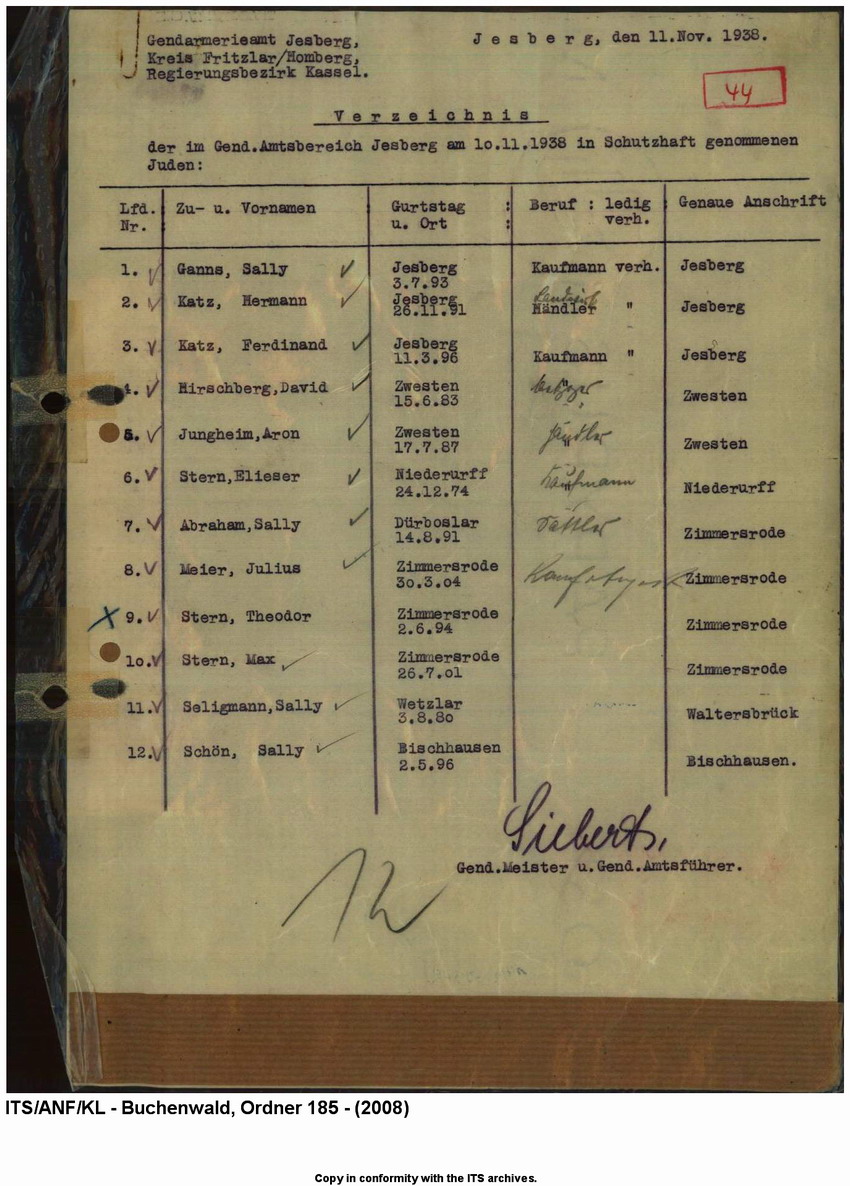 Gendarmerieamt Jesberg,
Jesberg, den 11.Nov. 1938.
Kreis Fritzlar/Homberg,
Regierungsbezirk Kassel.
44
Verzeichnis
der im Gend.Amtsbereich Jesberg am 10.11.1938 in Schutzhaft genommenen
Juden:
Lfd. Nr. Zu- u. Vornamen Gurtstag : u. Ort : Beruf : ledig verh. Genaue Anschrift
1. Ganns, Sally Jesberg 3.7.93 Kaufmann verh. Jesberg
2. Katz, Hermann Jesberg 26.11.91 Landwirt Händler " Jesberg
3. Katz, Ferdinand Jesberg 11.3.96 Kaufmann " Jesberg
4. Hirschberg,David Zwesten 15.6.83 Metzger " Zwesten
5. Jungheim,Aron Zwesten 17.7.87 Händler Zwesten
6. Stern,Elieser Niederurff 24.12.74 Kaufmann Niederurff
7. Abraham,Sally Dürboslar 14.8.91 Sattler Zimmersrode
8. Meier, Julius Zimmersrode 30.3.04 Zimmersrode
X 9. Stern, Theodor Zimmersrode 2.6.94 Zimmersrode
10. Stern, Max Zimmersrode 26.7.01 Zimmersrode
11. Seligmann,Sally Wetzlar 3.8.80 Waltersbrück
12. Schön, Sally Bischhausen 2.5.96 Bischhausen.
Siebert,
Gend.Meister u.Gend.Amtsführer.
12
ITS/ANF/KL - Buchenwald, Ordner 185 - (2008)
Copy in conformity with the ITS archives.